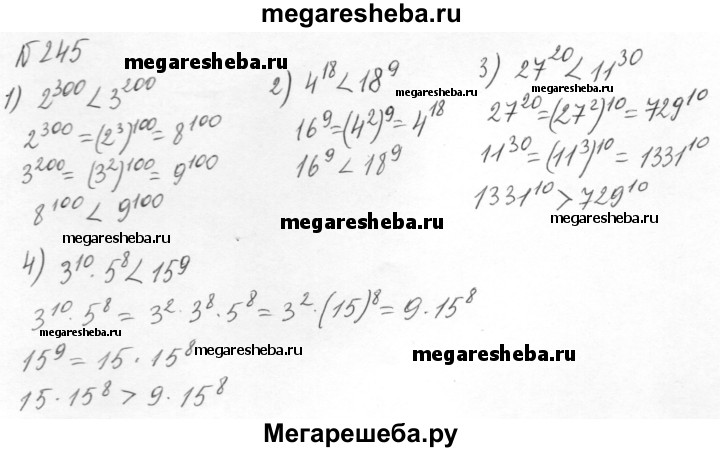 megaresheba.ru
№245
megaresheba.ru
1) 2^300 < 3^200
2^300 = (2^3)^100 = 8^100
3^200 = (3^2)^100 = 9^100
8^100 < 9^100
megaresheba.ru
2) 4^18 < 18^9
16^9 = (4^2)^9 = 4^18
16^9 < 18^9
megaresheba.ru
megaresheba.ru
3) 27^20 < 11^30
megaresheba.ru
27^20 = (27^2)^10 = 729^10
11^30 = (11^3)^10 = 1331^10
1331^10 > 729^10
megaresheba.ru
4) 3^10 · 5^8 < 15^9
3^10 · 5^8 = 3^2 · 3^8 · 5^8 = 3^2 · (15)^8 = 9 · 15^8
megaresheba.ru
15^9 = 15 · 15^8
megaresheba.ru
megaresheba.ru
15 · 15^8 > 9 · 15^8
Мегарешеба.ру